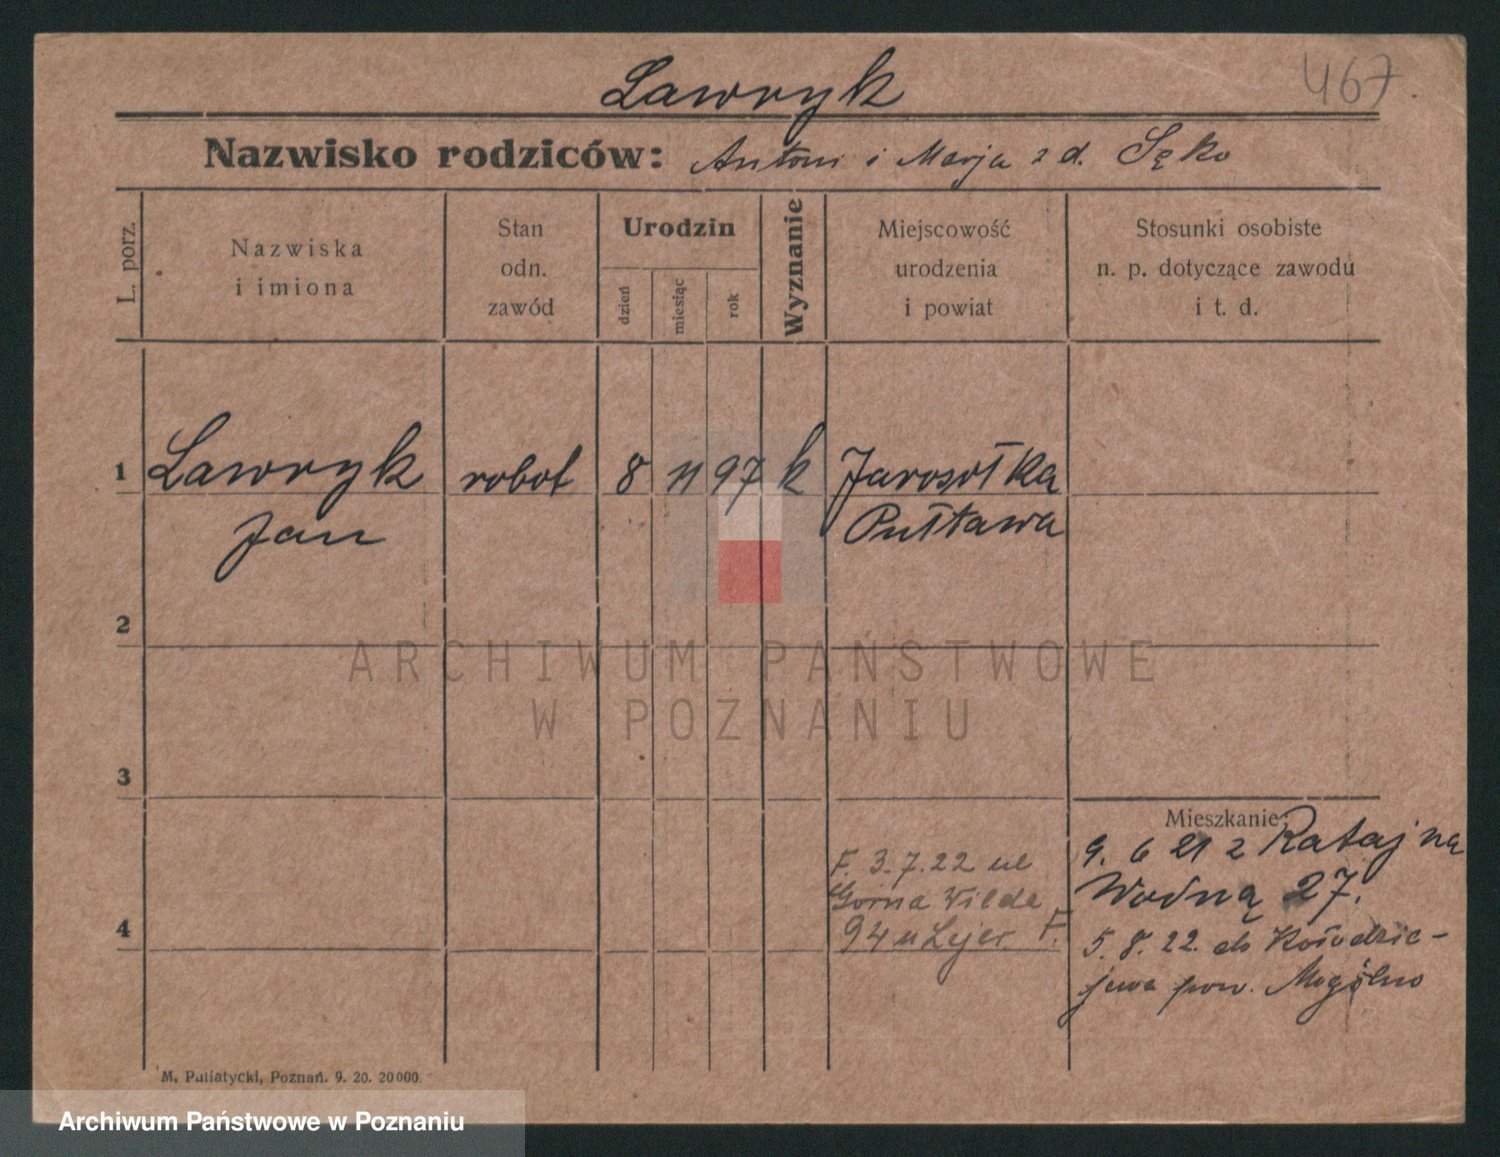 467
Ławryk
Nazwisko rodziców: Antoni i Marja z d. Sęko
L. porz.
Nazwiska
i imiona
Stan
odn.
zawód
Urodzin
dzień
miesiąc
rok
Wyznanie
Miejscowość
urodzenia
i powiat
Stosunki osobiste
n. p. dotyczące zawodu
i t. d.
1 Ławryk robot 8 11 97 k Jarosołka
Jan Pułtawa
2
ARCHIWUM PAŃSTWOWE
W POZNANIU
3
Mieszkanie:
9. 6 21 z Rataj na
Wodną 27.
5. 8. 22. do
pow. Mogilno
F. 3.7.22 ul
Górna Wilda
94 u Lejer. F.
4
M. Putiatycki, Poznań. 9. 20. 20000.
Archiwum Państwowe w Poznaniu